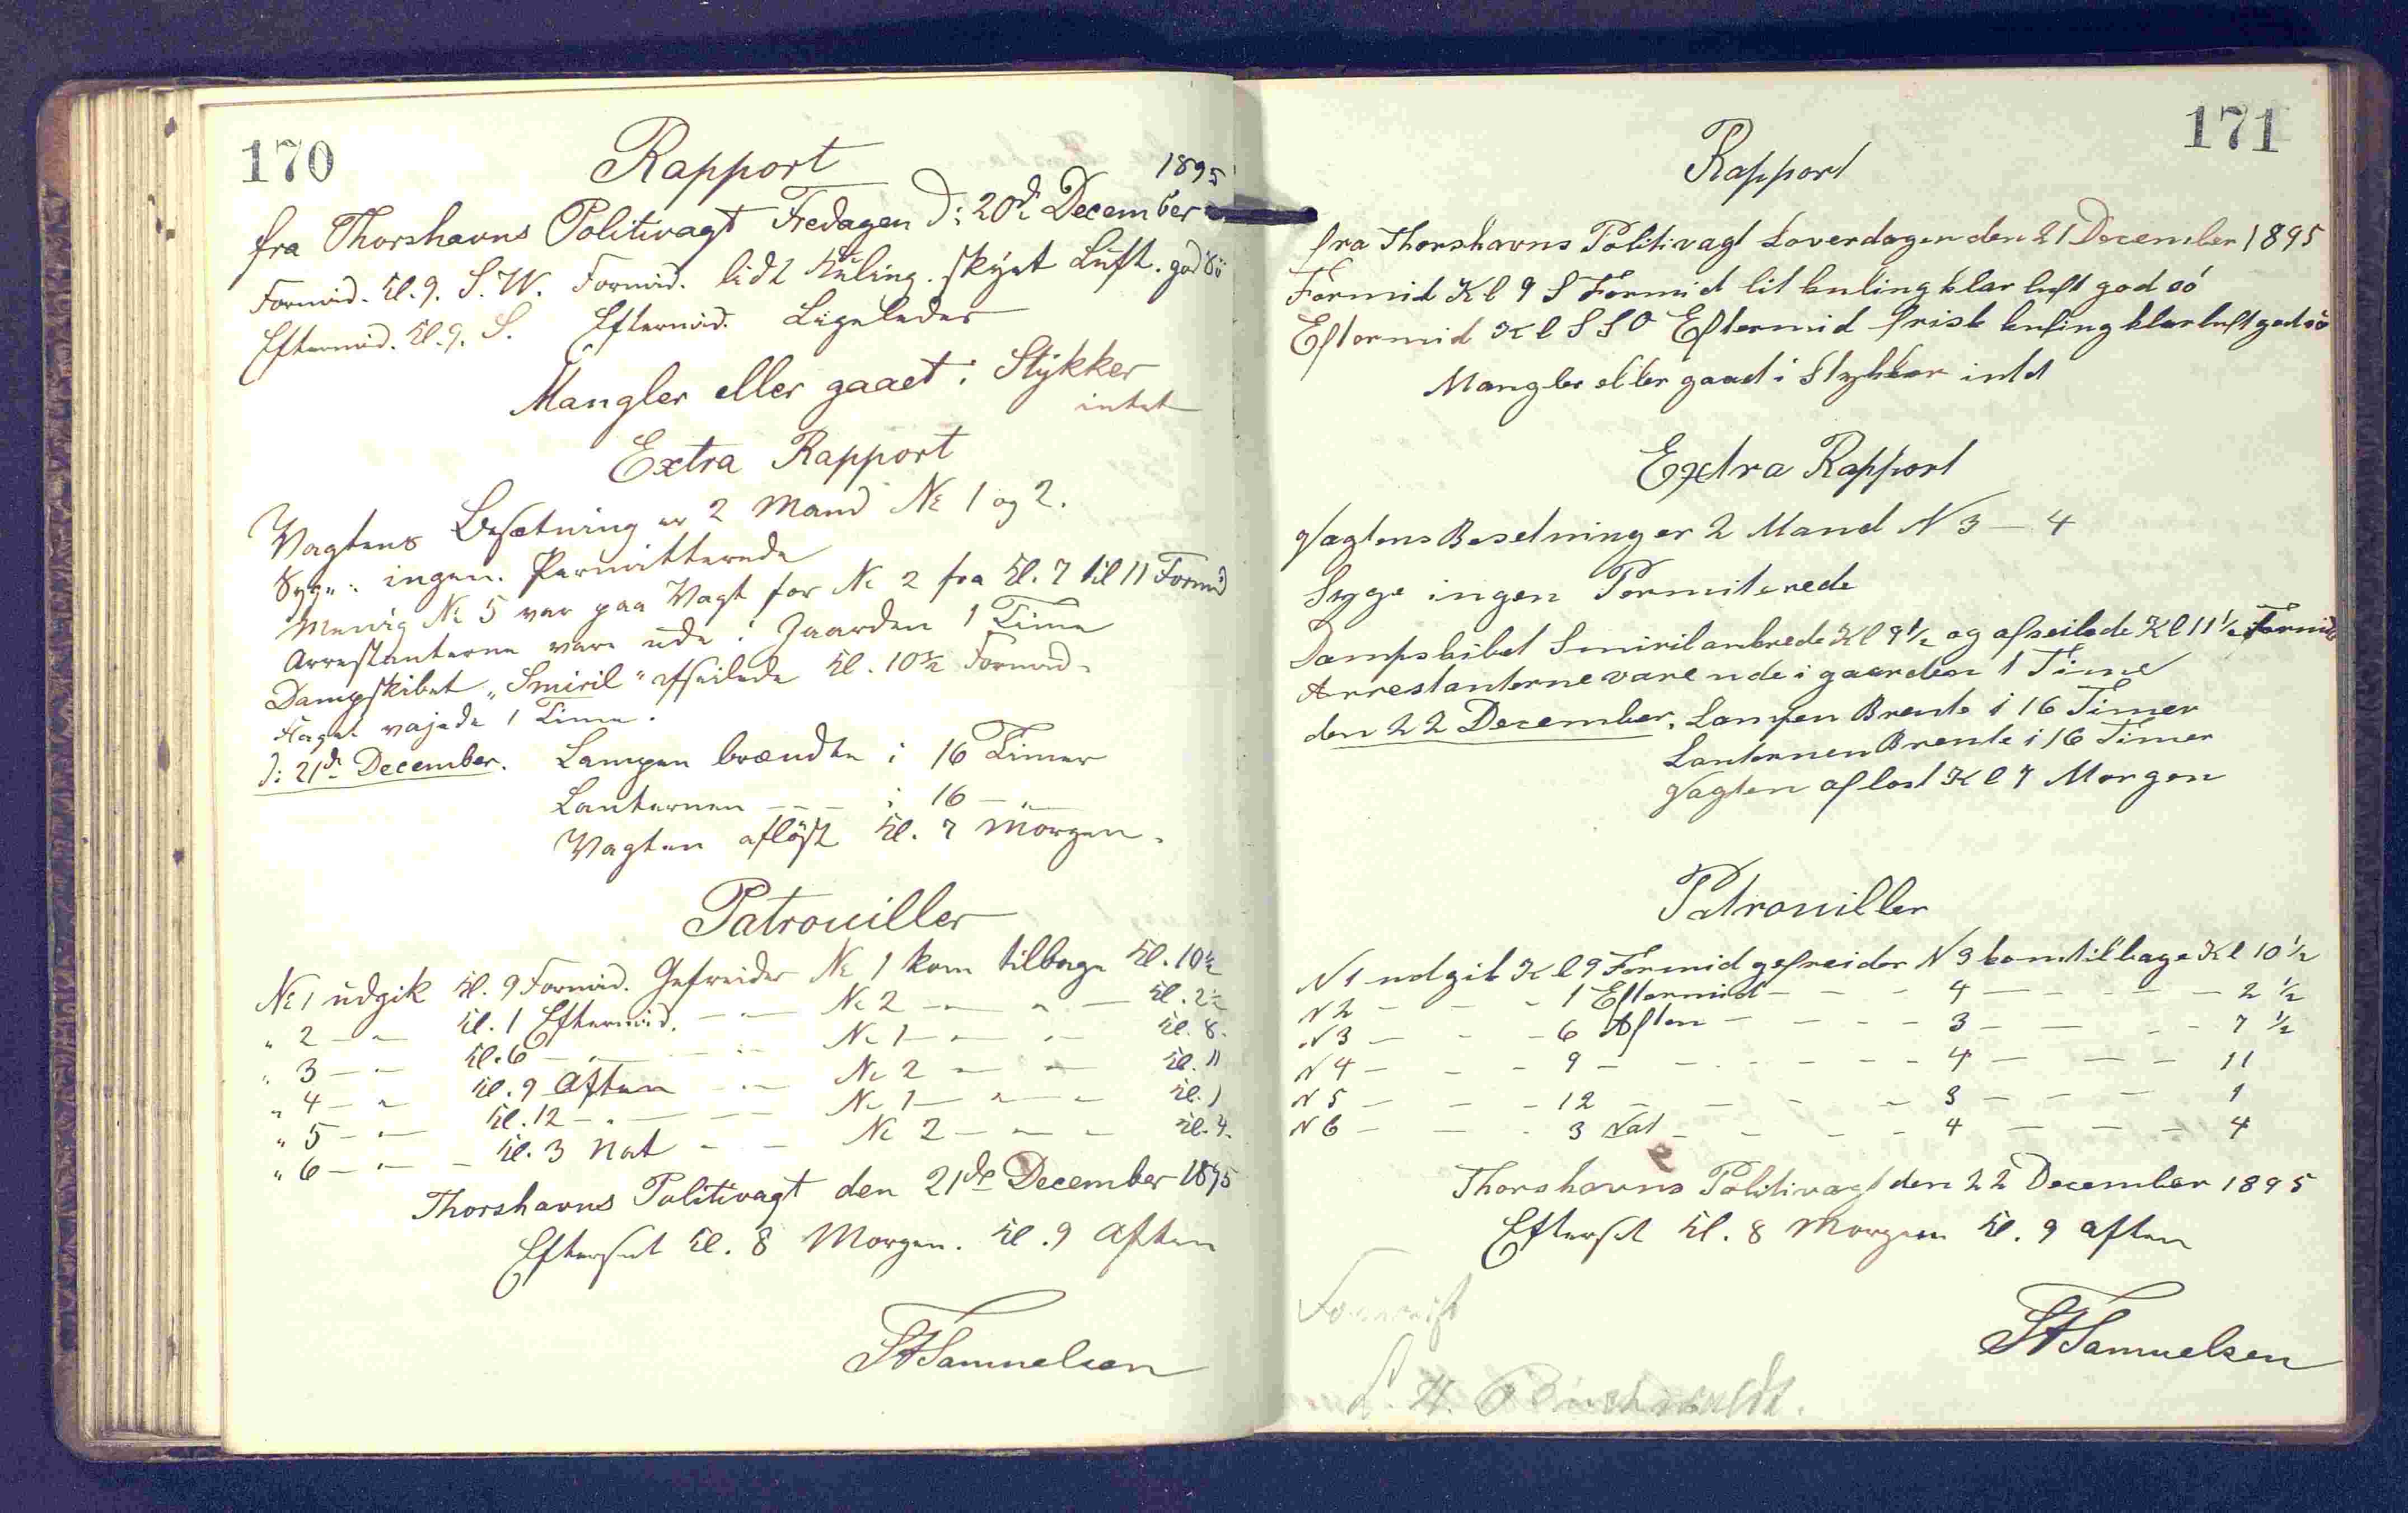 170
Rapport
1895
fra Thorshavns Politivagt Fredagen D: 20de December
Formid. Kl. 9. S.W. Formid. lidt Kuling. skyet Luft. god Sö
Eftermid. Kl. 9. S. Eftermid. Ligeledes
Mangler eller gaaet i Stykker
intet
Extra Rapport
Vagtens Besætning er 2 Mand No 1 og 2.
Syge: ingen. Permitterede
Menig No 5 var paa Vagt for No 2 fra Kl. 7 til 11 Formid
Arrestanterne vare ude i Gaarden 1 Time
Dampskibet „Smiril" afseilede Kl. 10½ Formid.
Flaget vajede 1 Time.
D: 21de December. Lampen brændte i 16 Timer
Lanternen - - - i 16 - „ -
Vagten aflöst Kl. 7 Morgen.
Patrouiller
No 1 udgik Kl. 9 Formid. Gefreider No 1 kom tilbage Kl. 10½
" 2 - " - Kl. 1 Eftermid. - - No 2 - " - " - Kl. 2½
" 3 - " - Kl. 6 - " - - " - No 1 - " - " - Kl. 8.
" 4 - " - Kl. 9 Aften - " - No 2 - " - " - Kl. 11
" 5 - " - Kl. 12 - " - - - No 1 - " - " - Kl. 1
" 6 - " - - Kl. 3 Nat - - No 2 - " - - Kl. 4.
Thorshavns Politivagt den 21de December 1895
Efterset Kl. 8 Morgen. Kl. 9 Aften
Samuelsen
171
Rapport
fra Thorshavns Politivagt Loverdagen den 21 December 1895
Formid Kl 9 S Formid lit kuling klar luft god sö
Eftermid Kl S S O Eftermid frisk kuling klar luft god sö
Mangler eller gaad i Stykker intd
Extra Rapport
Vagtens Besetning er 2 Mand N 3 — 4
Syge ingen Permiterede
Dampskibet Smiril ankrede Kl 9½ og afseilede Kl 11½ Formid
Arrestanterne vare ude i gaarden 1 Time
den 22 December, Lampen Brente i 16 Timer
Lanternen Brente i 16 Timer
Vagten aflost Kl 7 Morgen
Patrouiller
N 1 udgik Kl 9 Formid gefreider N 3 kom tilbage Kl 10½
N 2 - - - 1 Eftermid - - - 4 - - - - 2½
N 3 - - - 6 Aften - - - - 3 - - - - 7½
N 4 - - - 9 - - - - - - 4 - - - - 11
N 5 - - - 12 - - - - - 3 - - - 1
N 6 - - - 3 Nat - - - - 4 - - - - 4
Thorshavns Politivagt den 22 December 1895
Efterset Kl. 8 Morgen Kl. 9 Aften
Samuelsen